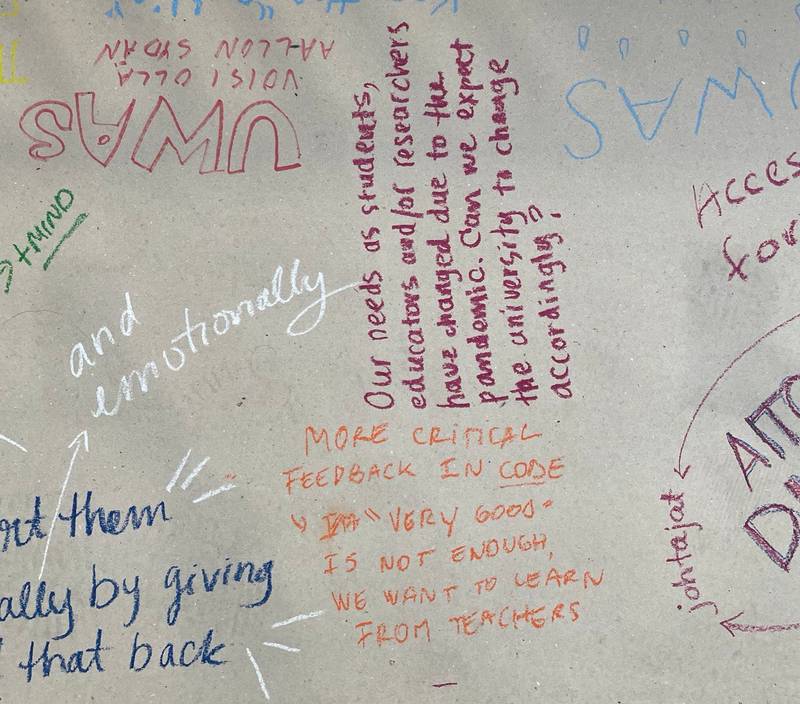 UWAS
VOISI OLLA
AALLON SYDÄN
UWAS
+MIND
and
emotionally
Our needs as students,
educators and/or researchers
have changed due to the
pandemic. Can we expect
the university to change
accordingly?
for
MORE CRITICAL
FEEDBACK IN CODE
"VERY GOOD"
IS NOT ENOUGH,
WE WANT TO LEARN
FROM TEACHERS
them
by giving
that back
johtajat